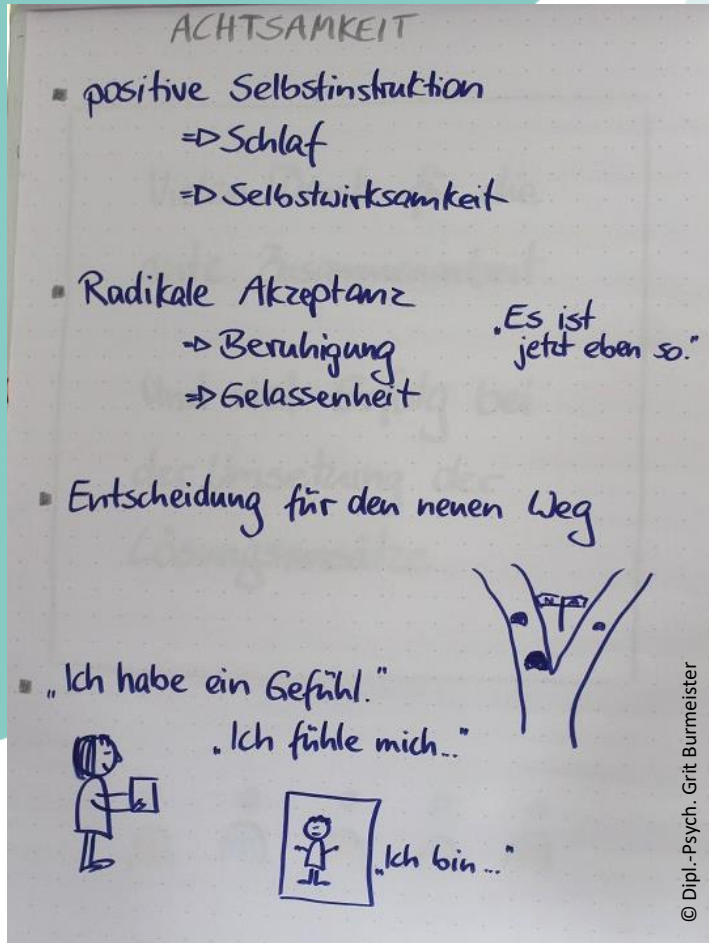 ACHTSAMKEIT
▪ positive Selbstinstruktion
=> Schlaf
=> Selbstwirksamkeit
▪ Radikale Akzeptanz
=> Beruhigung
=> Gelassenheit
„Es ist
jetzt eben so."
▪ Entscheidung für den neuen Weg
N A
▪ „Ich habe ein Gefühl."
„Ich fühle mich..."
„Ich bin..."
© Dipl.-Psych. Grit Burmeister